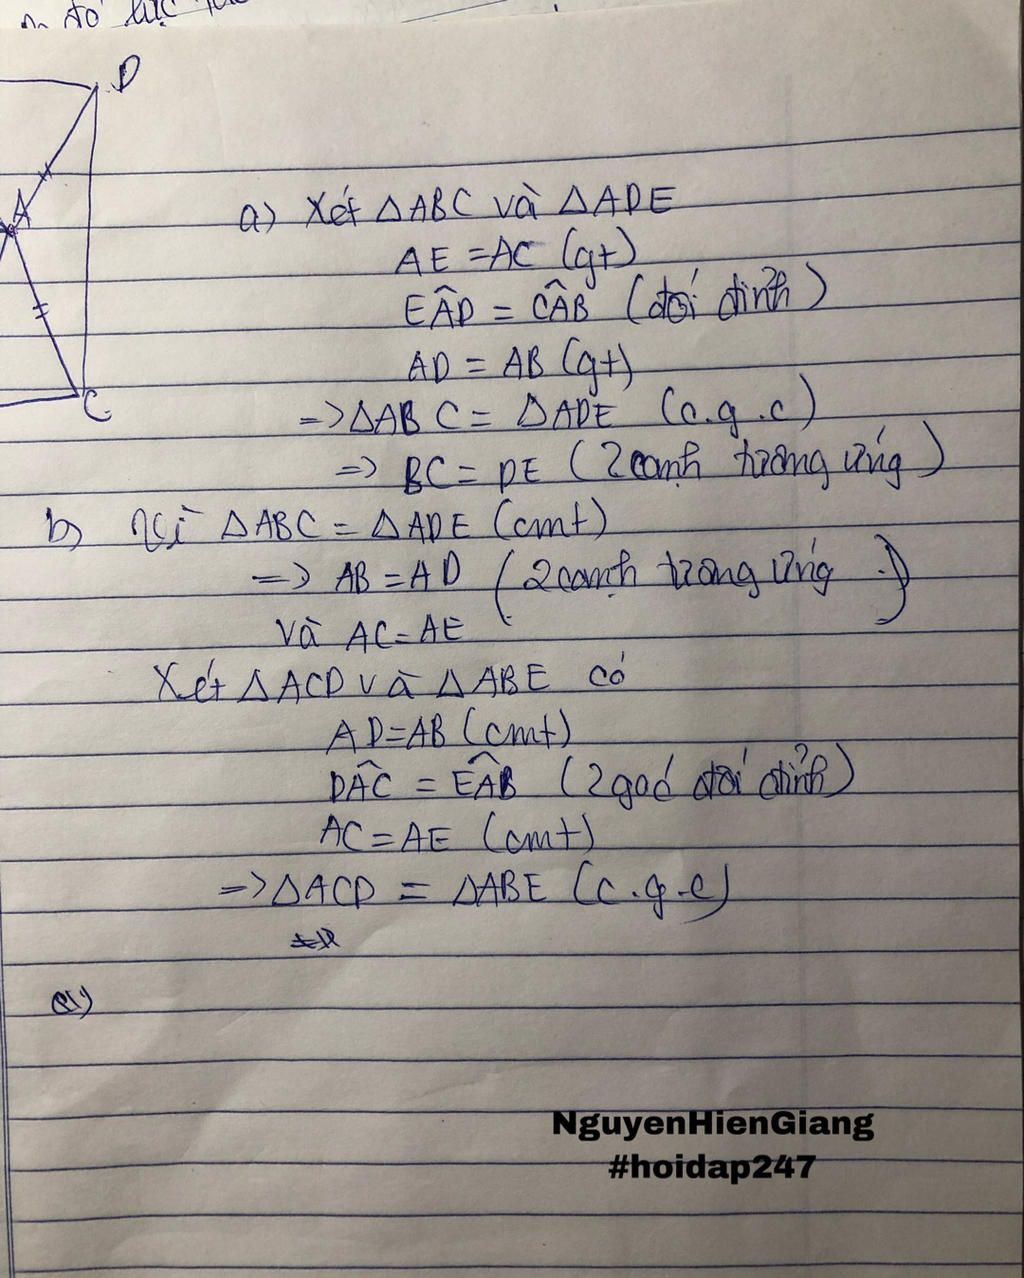 D
A
C
a) Xét △ABC và △ADE
AE = AC (gt)
EÂD = CÂB (đối đỉnh)
AD = AB (gt)
=> △ABC = △ADE (c.g.c)
=> BC = DE (2 cạnh tương ứng)
b) Vì △ABC = △ADE (cmt)
=> AB = AD (2 cạnh tương ứng)
và AC = AE
Xét △ACD và △ABE có
AD = AB (cmt)
DÂC = EÂB (2 goć đối đỉnh)
AC = AE (cmt)
=> △ACD = △ABE (c.g.c)
NguyenHienGiang
#hoidap247